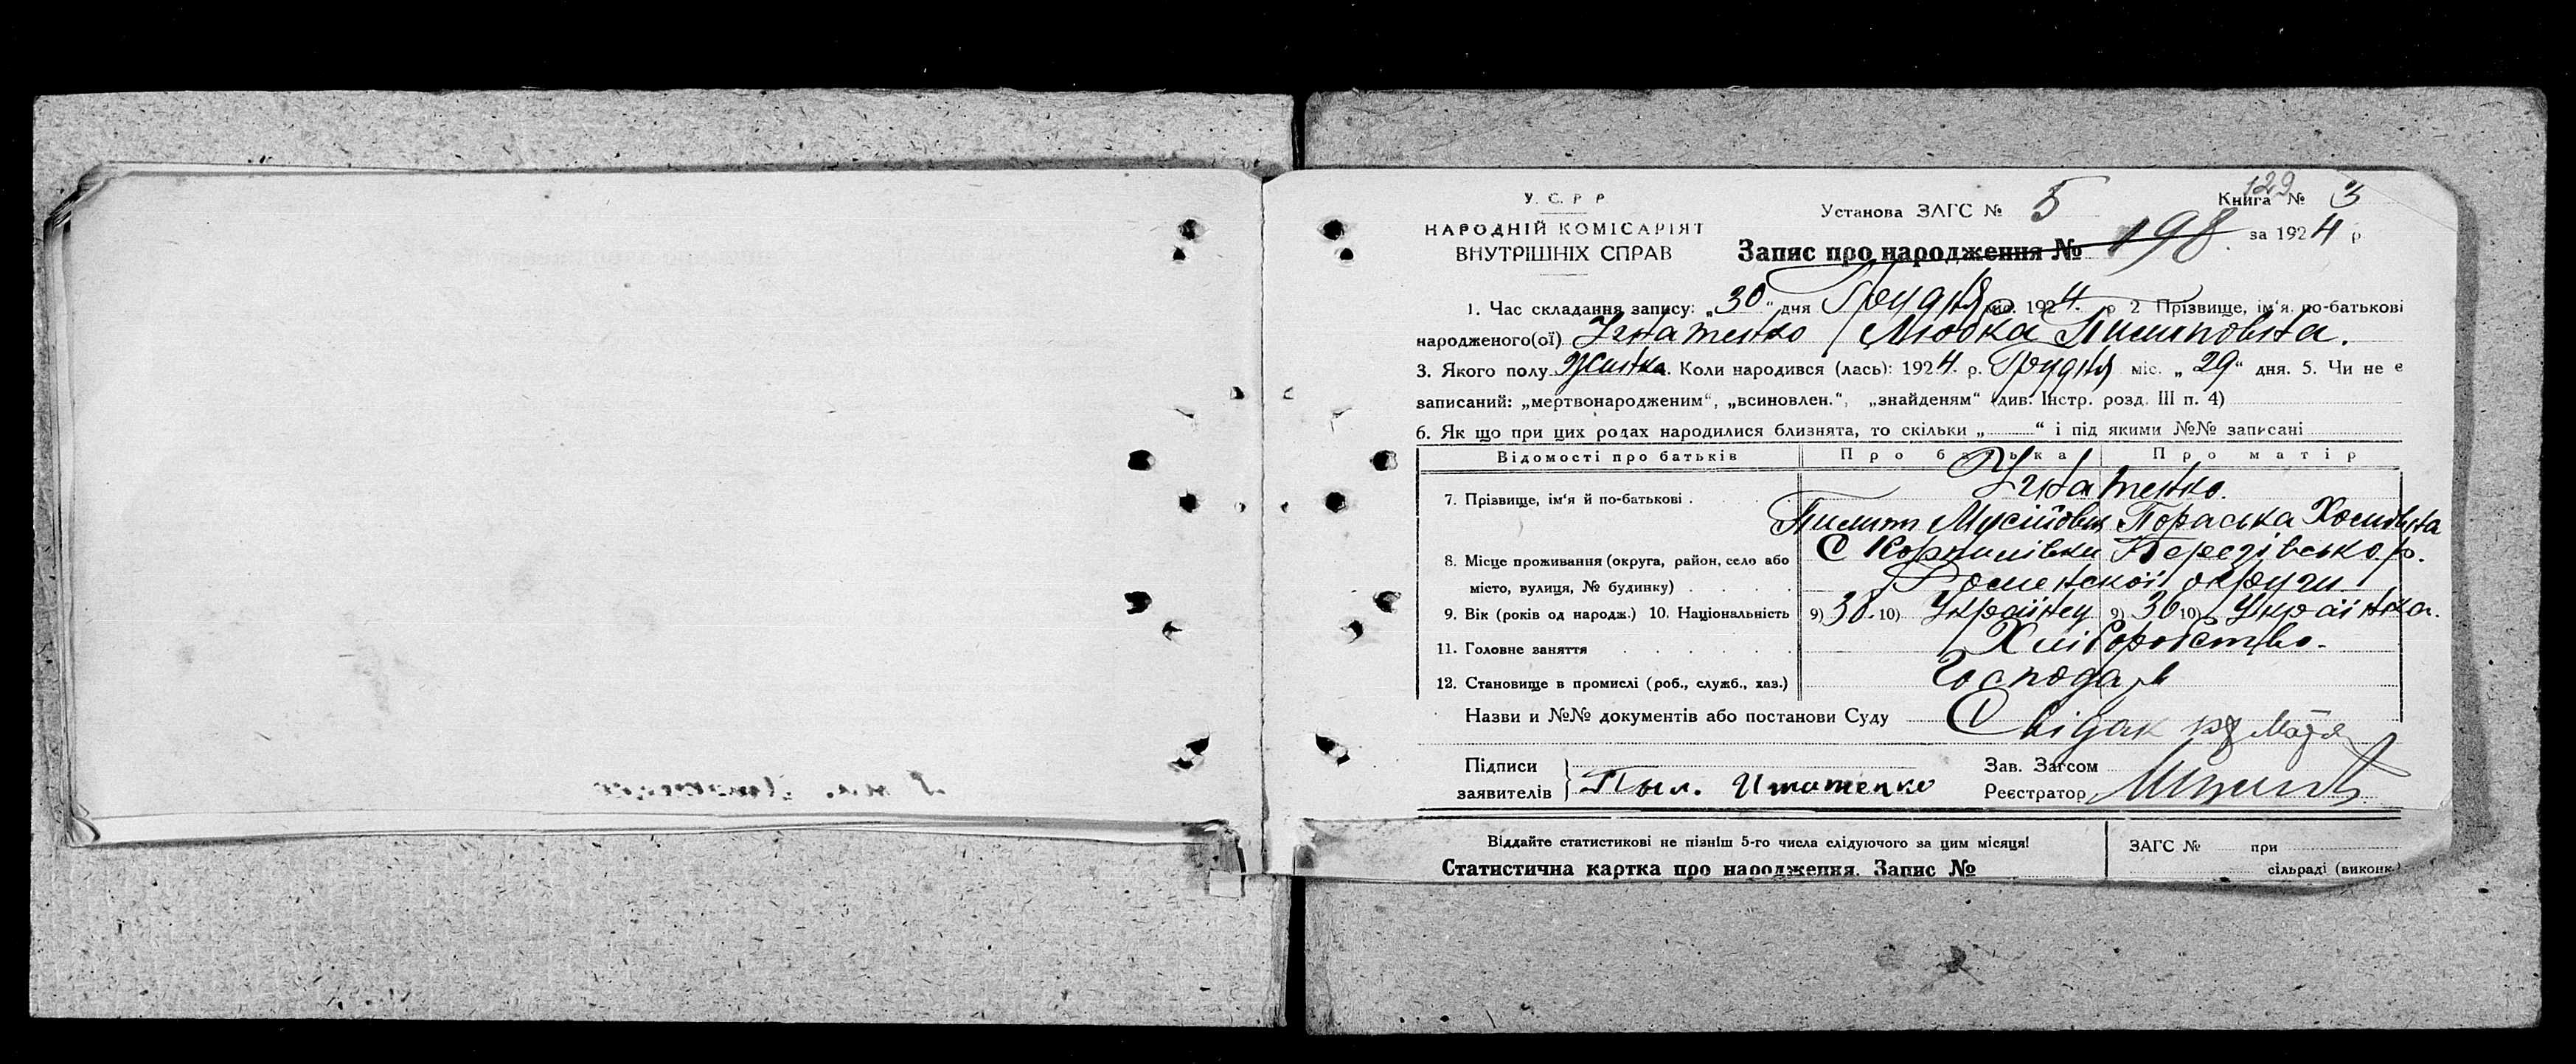 У. С. Р Р
НАРОДНІЙ КОМІСАРІЯТ
ВНУТРІШНІХ СПРАВ
Установа ЗАГС № 5
129
Книга № 3
Запис про народження № 198 за 1924 р.
1. Час складання запису: „30" дня Грудня міс. 1924 р 2 Прізвище, ім'я, по-батькові
народженого(ої) Ігнатенко Любка Пилиповна.
3. Якого полу Жінка. Коли народився (лась): 1924 р. Грудня міс. „29" дня. 5. Чи не є
записаний: „мертвонародженим", „всиновлен.", „знайденям" (див. Інстр. розд. III п. 4)
6. Як що при цих родах народилися близнята, то скільки „ " і під якими №№ записані
Відомості про батьків Про батька Про матір
7. Прізвище, ім'я й по-батькові . Ігнатенко.
Пилип Мусійович Параска
8. Місце проживання (округа, район, село або С Корпилівки р.
місто, вулиця, № будинку) . Роменської округи
9. Вік (років од народж.) 10. Національність 9) 38. 10) Українец 9) 36 10) Українка.
11. Головне заняття Хліборобство.
12. Становище в промислі (роб., служб., хаз.) Господарь
Назви и №№ документів або постанови Суду
Підписи
заявителів Пыл. Игнатенко
Зав. Загсом
Реєстратор
Віддайте статистикові не пізніш 5-го числа слідуючого за цим місяця!
Статистична картка про народження. Запис №
ЗАГС № при
сільраді (виконк.)